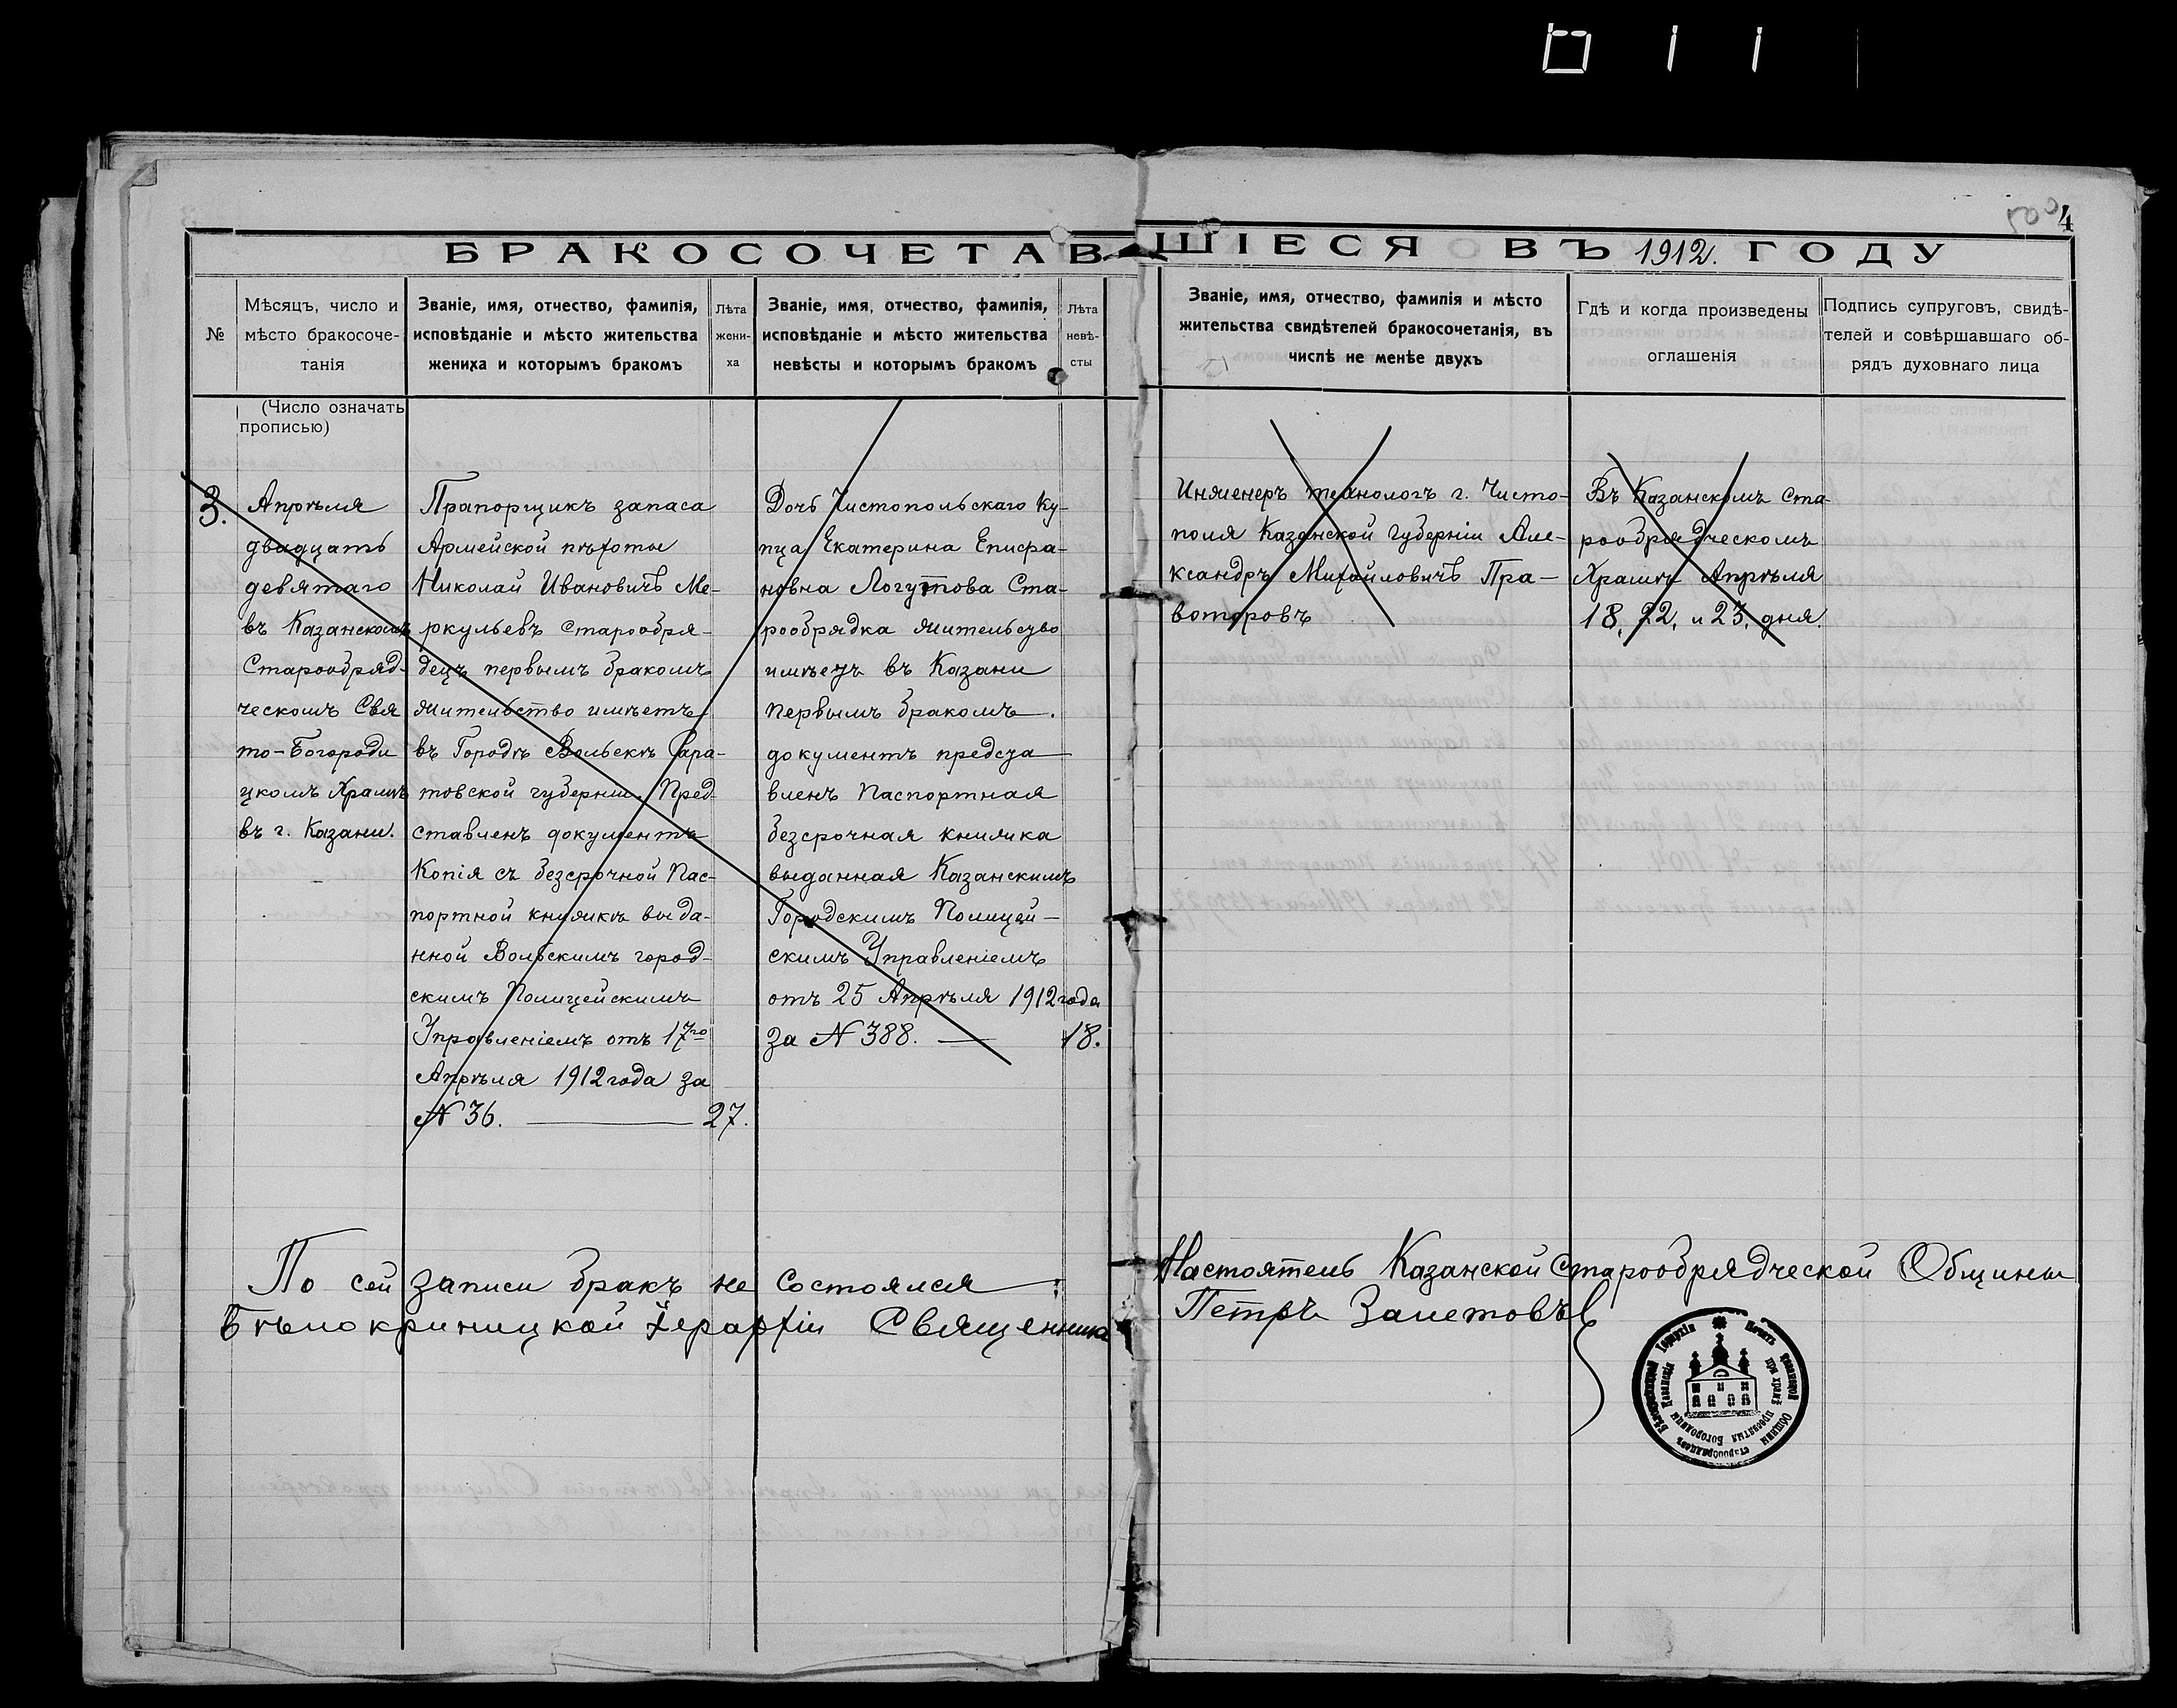 4
БРАКОСОЧЕТАВШІЕСЯ ВЪ 1912. ГОДУ
№
Мѣсяцъ, число и
мѣсто бракосоче-
танія
Званіе, имя, отчество, фамилія,
исповѣданіе и мѣсто жительства
жениха и которымъ бракомъ
Лѣта
жени-
ха
Званіе, имя, отчество, фамилія,
исповѣданіе и мѣсто жительства
невѣсты и которымъ бракомъ
Лѣта
невѣ-
сты
Званіе, имя, отчество, фамилія и мѣсто
жительства свидѣтелей бракосочетанія, въ
числѣ не менѣе двухъ
Гдѣ и когда произведены
оглашенія
Подпись супруговъ, свидѣ-
телей и совѣршавшаго об-
рядъ духовнаго лица
(Число означать
прописью)
3.
Апрѣля
двадцать
девятаго
въ Казанскомъ
Старообряд-
ческомъ Свя
то-Богороди
цкомъ Храмѣ
въ г. Казани.
Прапорщикъ запаса
Армейской пѣхоты
Николай Ивановичъ Ме-
ркульевъ старообря-
децъ первымъ бракомъ
жительство имѣетъ
въ Городѣ Вольскѣ Сара-
товской губерніи. Пред-
ставленъ документъ
Копія съ безсрочной Пас-
портной книжкѣ выда-
нной Вольскимъ город-
скимъ Полицейскимъ
Управленіемъ отъ 17го
Апрѣля 1912 года за
№ 36. — 27.
Дочь Чистопольскаго Ку-
пца Екатерина Епифа-
новна Логутова Ста-
рообрядка жительство
имѣетъ въ Казани
первымъ бракомъ.
документъ предста-
вленъ Паспортная
безсрочная книжка
выданная Казанскимъ
Городскимъ Полицей-
скимъ Управленіемъ
отъ 25 Апрѣля 1912 года
за № 388. — 18.
Инженеръ технологъ г. Чисто-
поля Казанской губерніи Але-
ксандръ Михайловичъ Пра-
воторовъ
Въ Казанскомъ Ста-
рообрядческомъ
Храмѣ Апрѣля
18, 22, и 23, дня.
По сей записи бракъ не состоялся:
Бѣлокриницкой Іерархіи Священникъ
Настоятель Казанской Старообрядческой Общины
Петръ Залетовъ